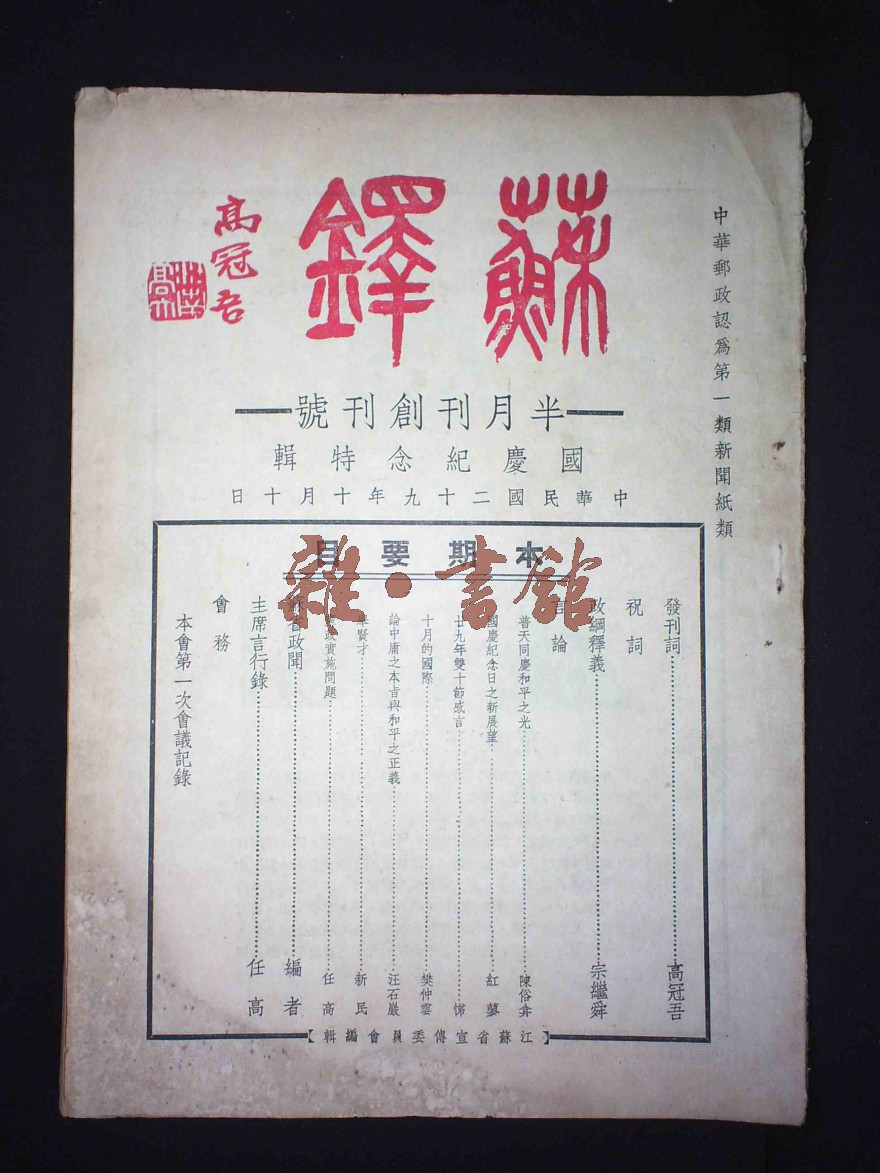 中華郵政認爲第一類新聞紙類
蘇鐸
高冠吾
半月刊創刊號
國慶紀念特輯
中華民國二十九年十月十日
本期要目
雜·書館
發刊詞……高冠吾
祝詞
政綱釋義……宗繼舜
言論
普天同慶和平之光……陳俗弇
國慶紀念日之新展望……紅蓼
廿九年雙十節感言……
十月的國際……樊仲雲
論中庸之本旨與和平之正義……汪石巖
賢才……新民
政實施問題……任高
蘇省政聞……編者
主席言行錄……任高
會務
本會第一次會議記錄
【江蘇省宣傳委員會編輯】